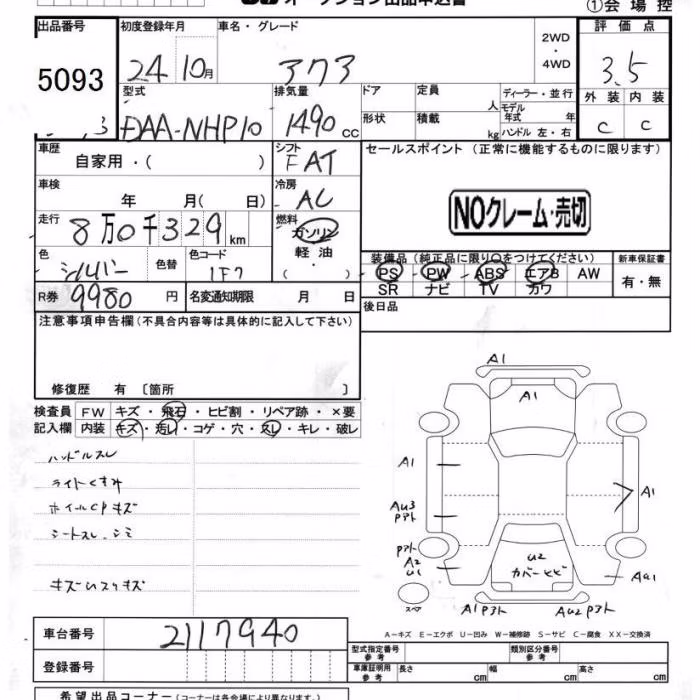 オークション出品申込書
①会場控
出品番号 初度登録年月 車名・グレード 2WD・4WD 評価点
5093 24 10月 アクア 3.5
型式 排気量 ドア 定員 人 ディーラー・並行 外装 内装
DAA-NHP10 1490cc 形状 積載 kg モデル年式 年 ハンドル 左・右 C C
車歴 自家用・( ) シフト FAT セールスポイント (正常に機能するものに限ります)
車検 年 月( 日) 冷房 AC
NOクレーム・売切
走行 8万0千329km 燃料 ガソリン 軽油・( )
色 シルバー 色替 色コード 1F7
装備品(純正品に限り○をつけてください) 新車保証書
PS PW ABS エアB AW 有・無
SR ナビ TV カワ
R券 9980円 名変通知期限 月 日 後日品
注意事項申告欄(不具合内容等は具体的に記入して下さい)
修復歴 有 〔箇所 〕
検査員 FW キズ・飛石・ヒビ割・リペア跡・×要
記入欄 内装 キズ・汚れ・コゲ・穴・スレ・キレ・破レ
ハンドルスレ
ライトくすみ
ホイールCPキズ
シートスレ、シミ
A1
A1
A1
A1
AU3
Pアト
Pアト
A2
U1
U2
カバーヒビ
AU1
スペア
A1Pアト AU2Pアト
A-キズ E-エクボ U-凹み W-補修跡 S-サビ C-腐食 XX-交換済
車台番号 2117940
登録番号
型式指定番号 参考 類別区分番号 参考
車庫証明用 参考 長さ cm 幅 cm 高さ cm
希望出品コーナー (コーナーは各会場により異なります。)